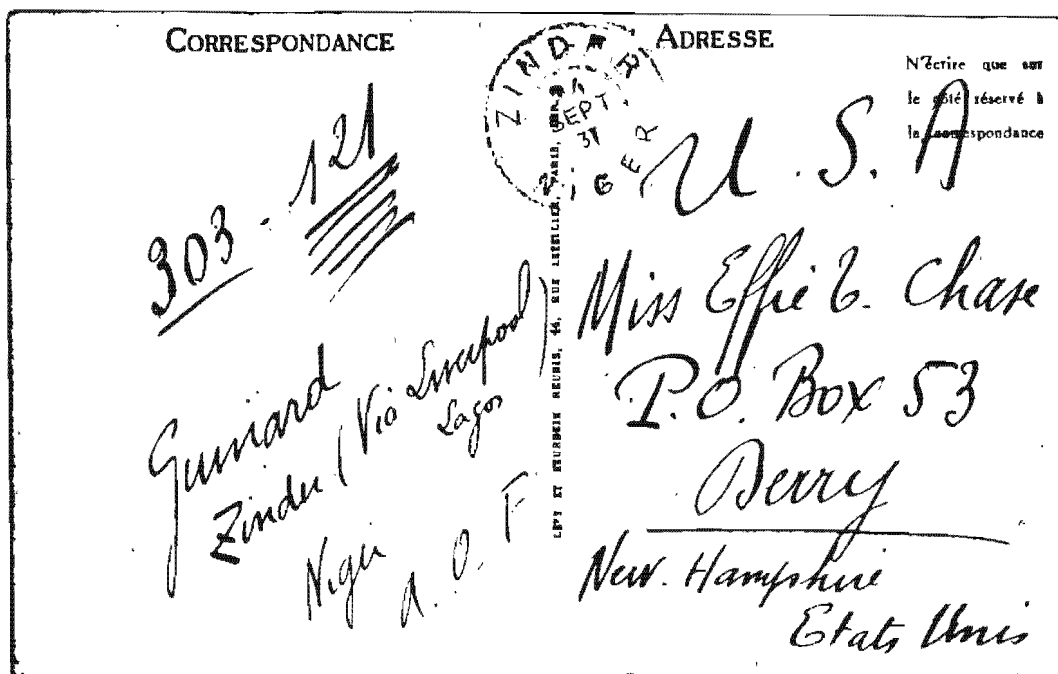 CORRESPONDANCE
ADRESSE
N'Ecrire que sur
le côté réservé à
la correspondance
ZINDER
SEPT
31
NIGER
303 - 121
Guiniard
Zinder (Via Liverpool
Lagos)
Niger
A. O. F
LÉVY ET NEURDEIN RÉUNIS, 44, RUE LETELLIER, PARIS,
U. S. A
Miss Effie T. Chase
P.O. Box 53
Derry
New. Hampshire
Etats Unis